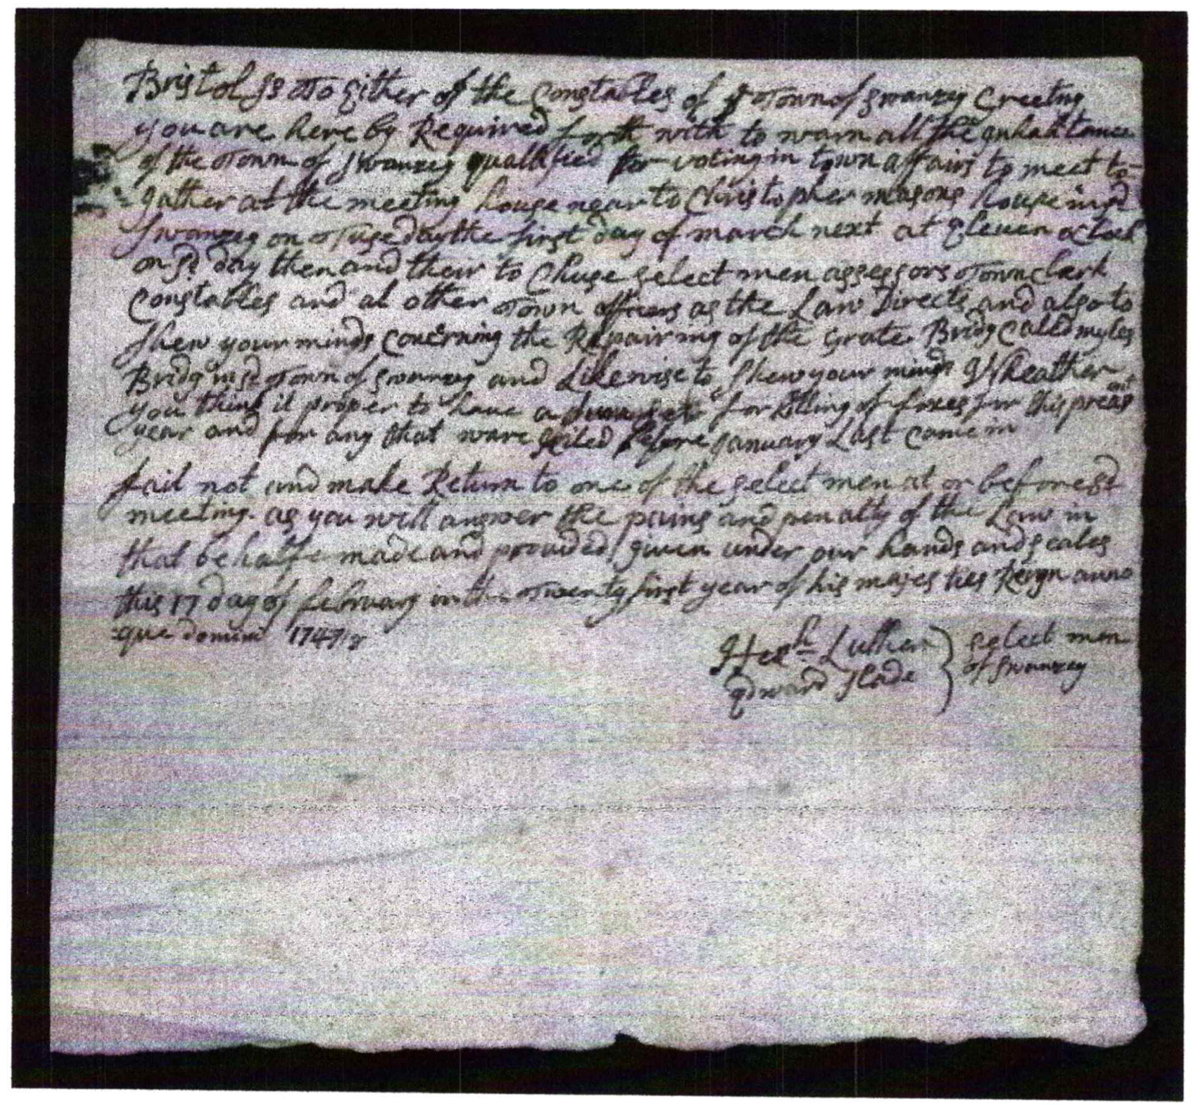 Bristol ss To Either of the Constables of ye Town of Swanzey Greeting
you are here by Required forth with to warn all the inhabitance
of the Town of Swanzey qualified for voting in town affairs to meet to=
gather at the meeting house near to Christopher masons house in sd
Swanzey on Tusedaythe first day of march next at Eleven a Clock
on sd day then and their to Chuse select men assessors Town clark
Constables and al other Town officers as the Law Directs and also to
Shew your minds concerning the Repairing of the Grate Bridg Called myles
Bridg in sd Town of Swanzey and Likewise to Shew your minds Wheather
you think it proper to have a for killing of foxes for this preasent
year and for any that ware killed before January Last came in
fail not and make Return to one of the select men at or before sd
meeting as you will answer the pains and penalty of the Law in
that behalfe made and provided given under our hands and seales
this 17 day of february in the Twenty first year of his majesties Reign anno
que domini 1747/8
Hezh Luther } select men
Edward Slade } of Swanzey